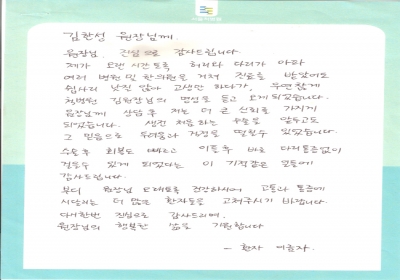 김찬성 원장님께.
원장님, 진심으로 감사드립니다
제가 오랜시간 토록 허리와 다리가 아파
여러 병원및 한의원을 거쳐 진료를 받았어도
쉽사리 낫질 않아 고생만 하다가, 우연찮게
척병원 김원장님의 명성을 듣고 오게되었습니다.
원장님께 상담 후 저는 더 큰 신뢰를 가지게
되었습니다. 생전 처음하는 수술을 앞두고도
그 믿음으로 두려움과 걱정을 떨칠수 있었습니다.
수술후 회복도 빠르고 이틀후 바로 다리통증없이
걸을수 있게 되었다는 이 기적같은 일들에
감사드립니다.
부디 원장님 오래토록 건강하시어 고통과 통증에
시달리는 더 많은 환자들을 고쳐주시기 바랍니다.
다시한번 진심으로 감사드리며,
원장님의 행복한 삶을 기원합니다
- 환자 여